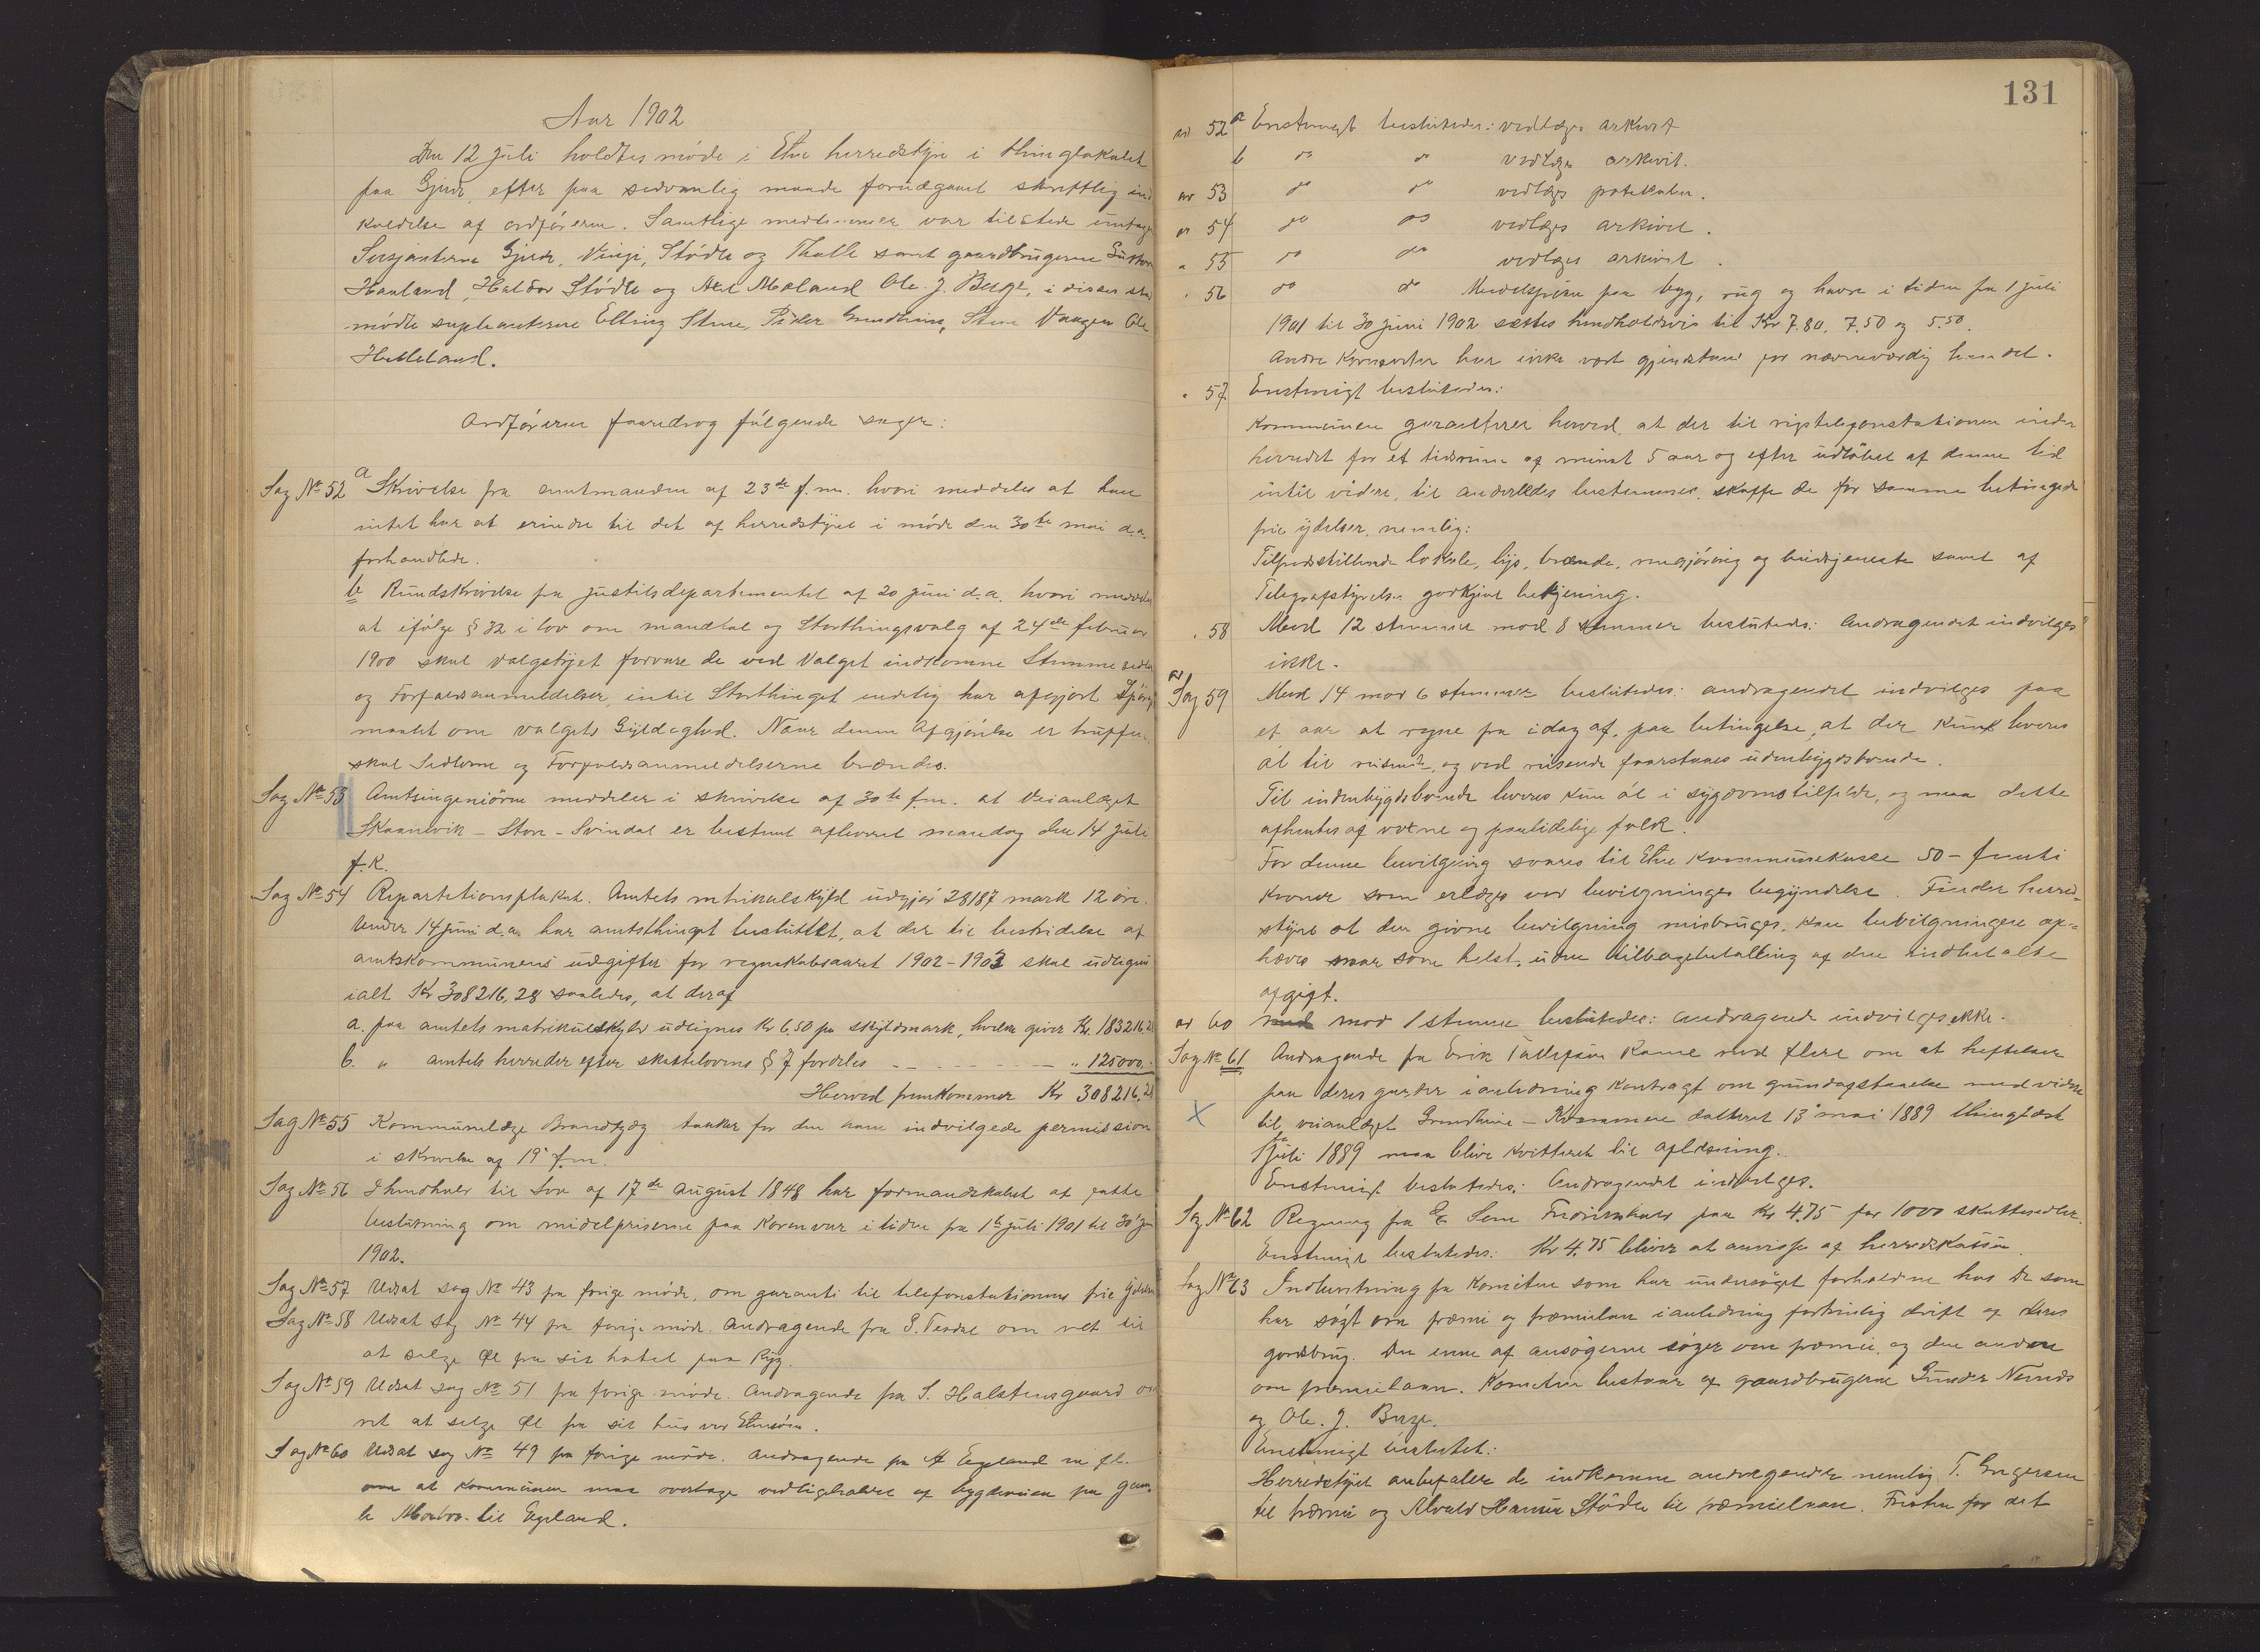 Aar 1902
Den 12 juli holdtes møde i Etne herredstyre i thinglokalet
paa Gjerde, efter paa sedvanlig maade forudgaaet skriftlig ind
kaldelse af ordføreren. Samtlige medlemmer var tilstede undtagen
Gjerde, Vinje, Stødle og Thalle samt gaardbrugerne
Haaland, Haldor Stødle og Axel Mæland Ole J. Berge, i disses sted
mødte supleanterne Elling Stene, Peder Grindheim, Sten Vaagen Ole
Hetleland.
Ordføreren foredrog følgende sager:
Sag No 52 a Skrivelse fra amtmanden af 23de f.m. hvori meddeles at han
intet har at erindre til det af herredstyret i møde den 30te mai d.a.
forhandlede.
b Rundskrivelse fra justitsdepartementet af 20 juni d.a. hvori meddeles
at ifølge § 32 i lov om mandtal og Storthingsvalg af 24de februar
1900 skal valgstyret forvare de ved Valget indkomne Stemmesedler
og Forfaldsanmeldelser, intil Storthinget endelig har afgjort Spørgs
maalet om valgets Gyldighed. Naar denne Afgjørelse er truffen
skal Sedlerne og Forfaldsanmeldelserne brændes.
Sag No 53 Amtsingeniøren meddeler i skrivelse af 30te f.m. at Veianlæget
Skaanevik - Store - Svindal er bestemt afleveret mandag den 14 juli
f.k.
Sag No 54 Repartetionsplakat. Amtets matrikulskyld udgjør 28187 mark 12 øre.
Under 14 juni d.a. har amtsthinget besluttet, at der til bestridelse af
amtskommunens udgifter for regnskabsaaret 1902-1903 skal udlignes
ialt Kr 308216,28 saaledes, at deraf
a. paa amtets matrikulskyld udlignes Kr 6,50 pr skyldmark, hvilke giver Kr. 183216,28
b. " amtets herreder efter skattelovens § 7 fordeles - - - - - " 125000.-
Herved fremkommer Kr 308216,28
Sag No 55 Kommunelæge Brandtzæg takker for den ham indvilgede permission
i skrivelse af 19de f.m.
Sag No 56 I henhold til Lov af 17de august 1848 har formandskabet at fatte
beslutning om midelpriserne paa kornvar i tiden fra 1te juli 1901 til 30te juni
1902.
Sag No 57 Udsat sag No 43 fra forige møde, om garanti til telefonstationens frie Ydelser
Sag No 58 Udsat sag No 44 fra forige møde. Andragende fra S. Tesdal om ret til
at selge Øl fra sit hotel paa Ryg.
Sag No 59 Udsat sag No 51 fra forige møde. Andragende fra S. Halstensgaard om
ret at selge Øl fra sit hus ved Etnesøen.
Sag No 60 Udsat sag No 49 fra forige møde. Andragende fra A Egeland m fl.
om at kommunen maa overtage vedligeholdet af bygdeveien fra gam
le til Egeland.
131
av 52 a Enstemigt besluttedes: vedlæges arkivet
b do do vedlæges arkivet.
av 53 do do vedlæges protokolen.
av 54 do do vedlæges arkivet.
" 55 do do vedlæges arkivet.
" 56 do do Medelprisen paa byg, rug og havre i tiden fra 1 juli
1901 til 30 juni 1902 sættes henholdsvis til Kr 7.80, 7,50 og 5,50.
Andre kornsorter har ikke vært gjenstand for nævneværdig handel.
" 57 Enstemigt besluttedes:
Kommunen garanterer herved, at der til rigstelefonstationen inden
herredet for et tidsrum af mindst 5 aar og efter udløbet af denne tid
intil videre, til anderledes bestemmes, skaffe de for samme betingede
frie ydelser, nemlig:
Tilfredsstillende lokale, lys, brænde, rengjøring og budtjeneste samt af
Telegrafstyrelsen godkjent betjening.
" 58 Med 12 stemmer mod 8 stemmer besluttedes: Andragendet indvilges
ikke.
av Sag 59 Med 14 mod 6 stemmer besluttedes: andragendet indvilges paa
et aar at regne fra idag af, paa betingelse, at der kun leveres
øl til reisende, og ved reisende forstaaes udenbygdsboende.
Til indenbygdsboende leveres kun øl i sygdomstilfelde, og maa dette
afhentes af voxne og paalidelige folk.
For denne bevilgning svares til Etne kommunekasse 50 - femti
kroner som erlæges ved bevilgningens begyndelse. Finder herred-
styret at den givne bevilgning misbruges, kan bevilgningen op-
hæves naar som helst, uden tilbagebetalling af den indbetalte
afgift.
av 60 mod 1 stemme besluttedes: andragende indvilges ikke.
Sag No 61 Andragende fra Erik med flere om at heftelser
paa deres garder i anledning kontragt om grundafstaaelse med videre
til veianlæget Grindheim - datteret 13de mai 1889 thinglæst
1ste juli 1889 maa blive kvitteret til aflæsning.
Enstemigt besluttedes: Andragendet indvilges.
Sag No 62 Regning fra Sem Fredrikshald paa Kr 4,75 for 1000 skattesedler.
Enstemigt besluttedes: Kr 4,75 bliver at anvise af herredskassen.
Sag No 63 Indberetning fra komiteen som har undersøgt forholdene hos de som
har søgt om præmi og præmielaan i anledning fortrinlig drift af deres
gardsbrug. Den enne af ansøgerne søger om præmie, og den anden
om præmielaan. Komiteen bestaar af gaardbrugerne Gunder
og Ole J. Berge.
Enstemigt besluttet:
Herredstyret anbefaler de indkomne andragender nemlig T. Ingersen
til præmi og Alvald Hansen Stødle til præmielaan. Fristen for det